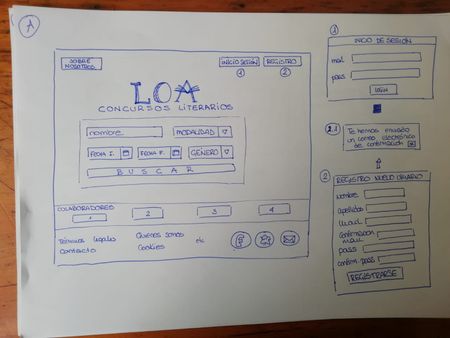 A
SOBRE
NOSOTROS
INICIO SESIÓN
REGISTRO
1
2
LOA
CONCURSOS LITERARIOS
nombre
MODALIDAD
FECHA I.
FECHA F.
GÉNERO
BUSCAR
COLABORADORES
1
2
3
4
Términos legales
Quienes somos
etc
Contacto
Cookies
f
1
INICIO DE SESIÓN
mail
pass
login
2.1
Te hemos enviado
un correo electrónico
de confirmación
2
REGISTRO NUEVO USUARIO
Nombre
apellidos
mail
confirmación
mail
pass
confirm. pass
REGISTRARSE